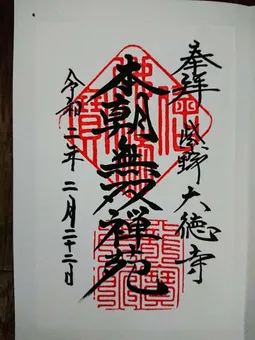 奉拝 紫野 大徳寺
本朝無双禅苑
令和二年二月二十二日